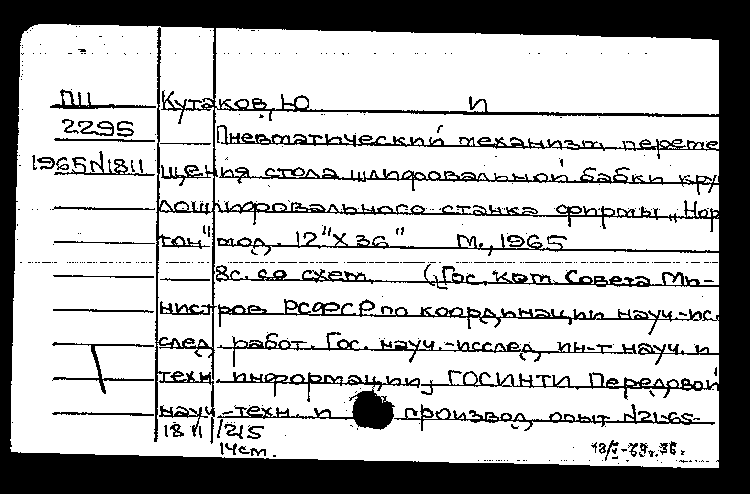 П11 Кутаков, Ю И
2295 Пневматический механизм переме
1965N1811 щения стола шлифовальной бабки кру
лошлифовального станка фирмы „Нор
тон" мод. 12"Х36" М., 1965
8с. со схем. (Гос. ком. Совета Ми-
нистров РСФСР по координации науч.-ис.
след. работ. Гос. науч.-исслед. ин-т науч. и
техн. информации, ГОСИНТИ. Передовой
науч.-техн. и производ. опыт N21-65-
1811/215
14см.